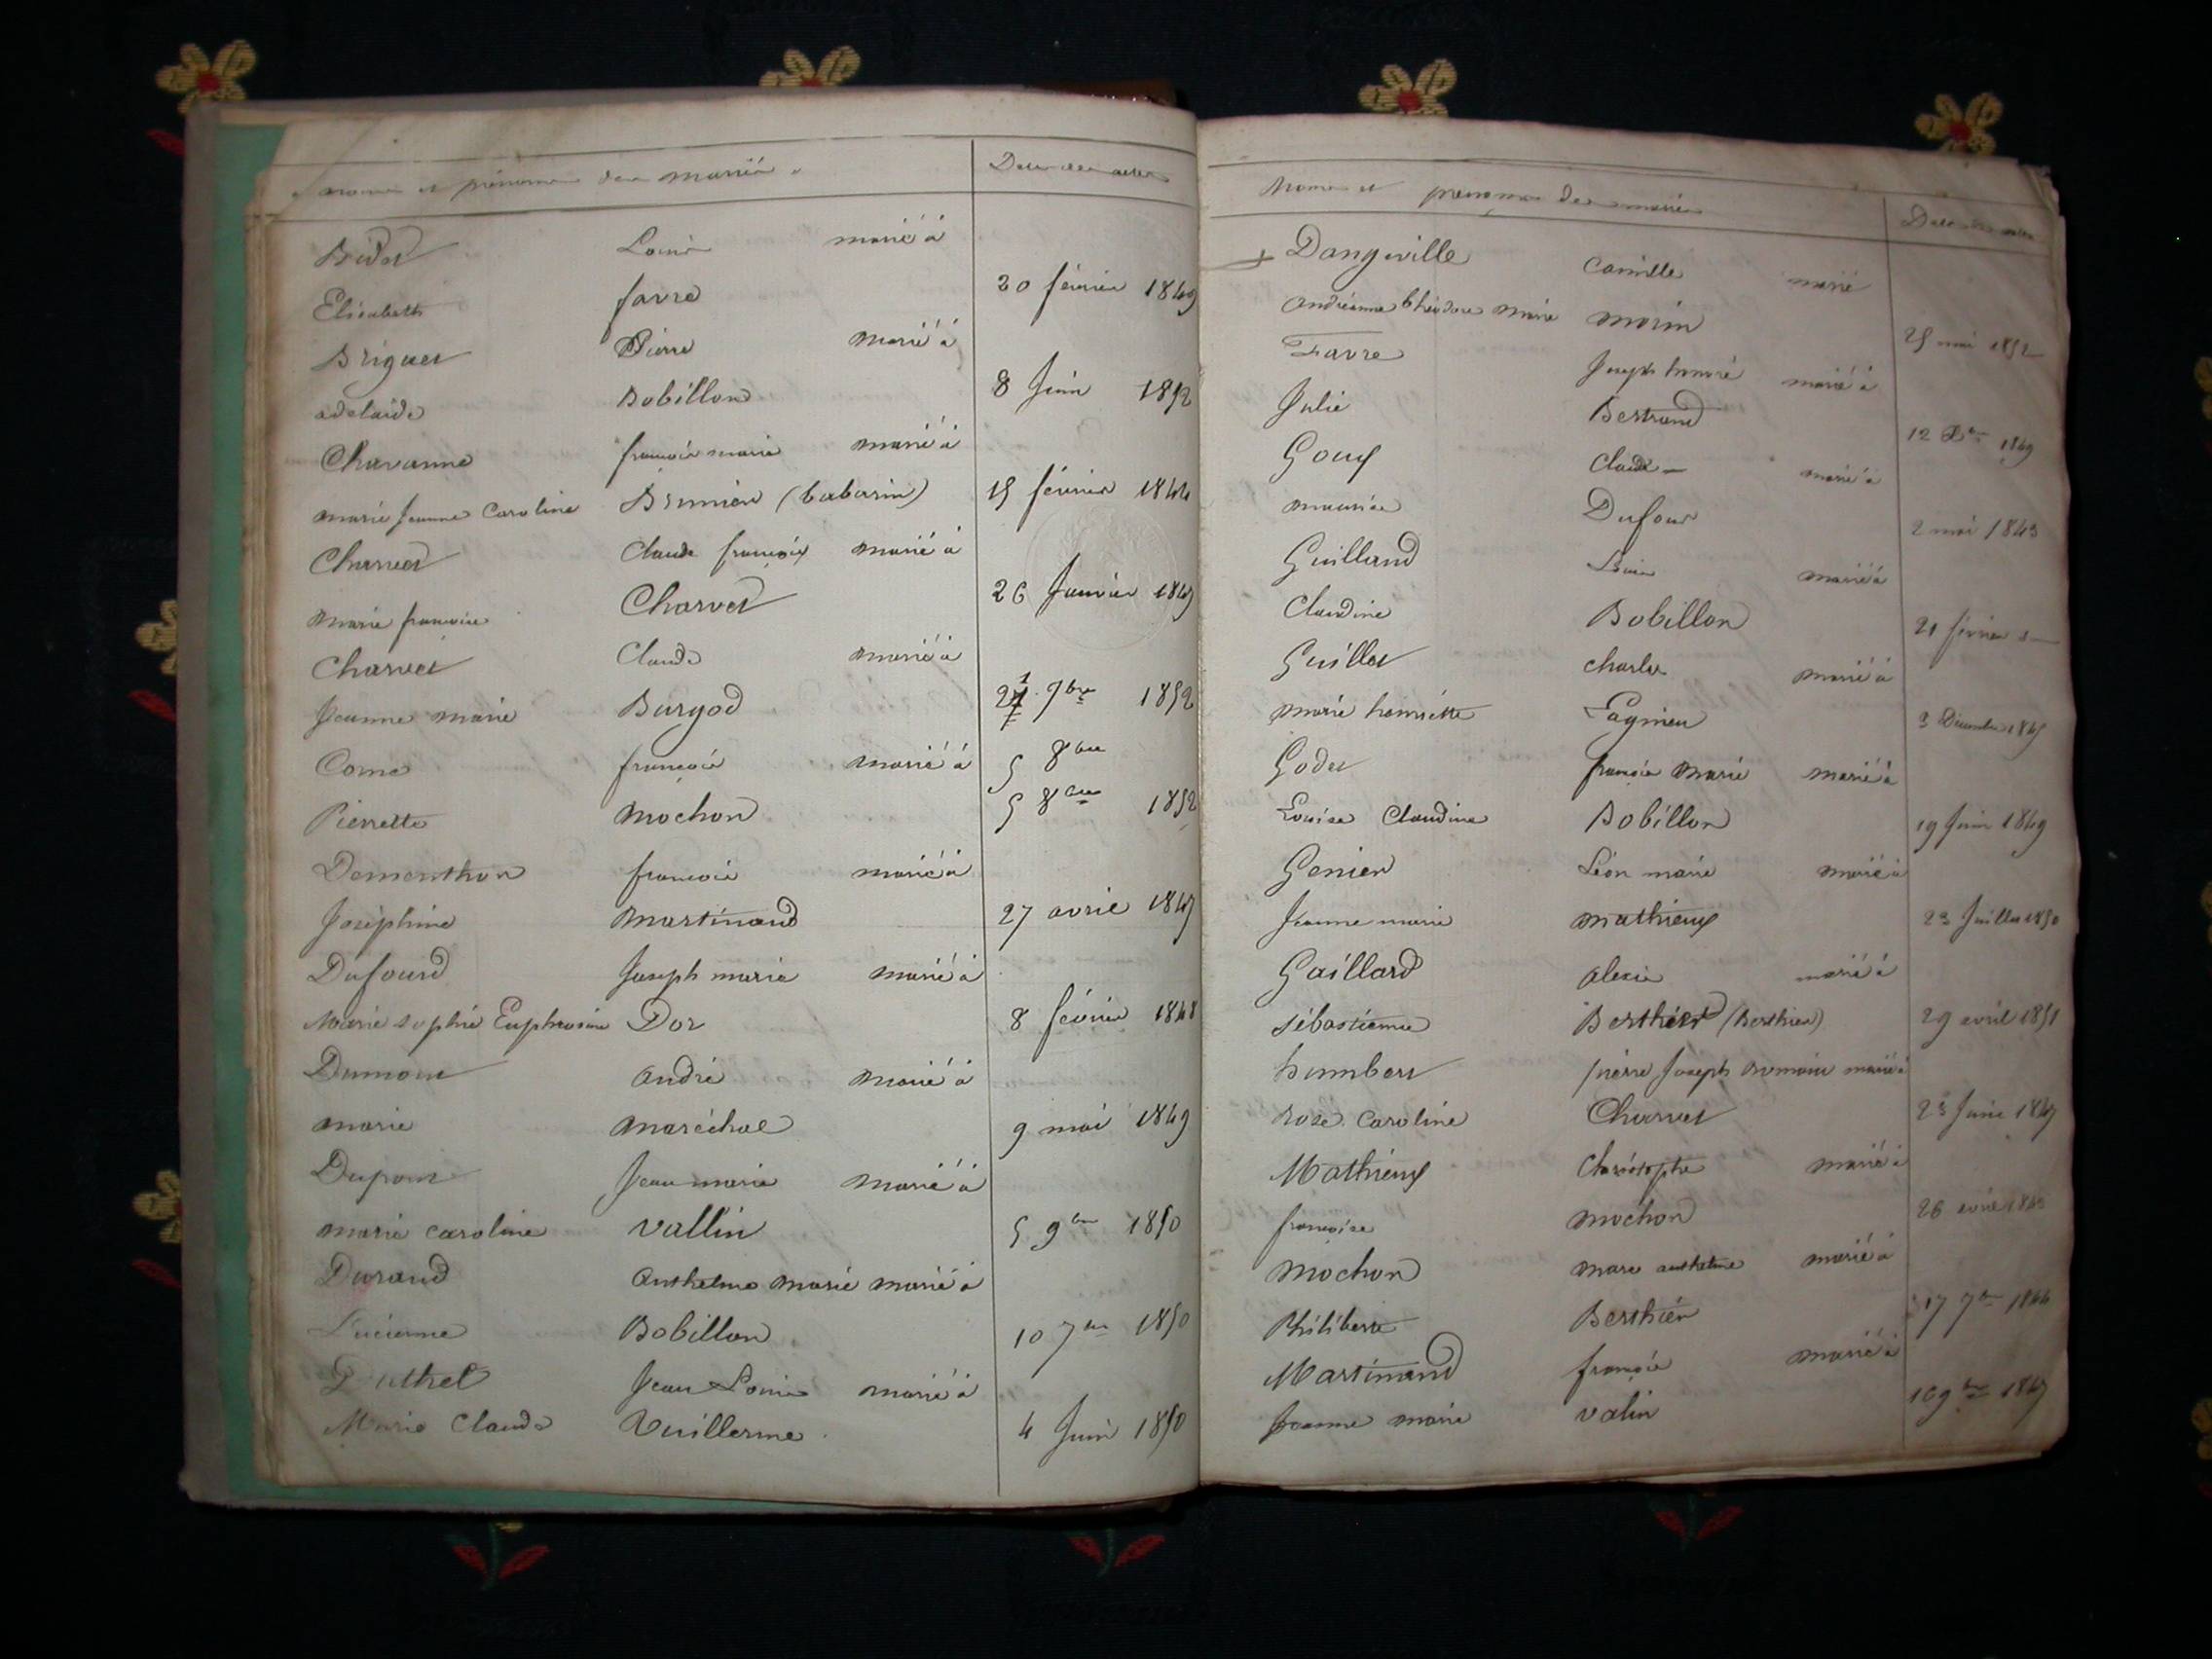 noms et prénoms des mariés Date des actes
Bidet Louis marié à
Elisabeth favre 20 février 1849
Briguet Pierre marié à
adelaide Bobillon 8 Juin 1852
Chavanne françois marie marié à
marie Jeanne Caroline Brunier (babarin) 15 février 1844
Charvet Claude françois marié à
marie françoise Charvet 26 Janvier 1847
Charvet Claude marié à
Jeanne marie Burgod 21 9bre 1852
Come françois marié à 5 8bre
Pierrette mochon 5 8bre 1852
Dementhon françois marié à
Joséphine Martinand 27 avril 1847
Dufourd Joseph marie marié à
Marie sophie Euphrosine Dor 8 février 1848
Dumont andré marié à
marie maréchal 9 mai 1849
Dupont Jean marie marié à
marie caroline vallin 5 9bre 1850
Durand Anthelme marie marié à
Lucienne Bobillon 10 7bre 1850
Duthel Jean Louis marié à
Marie Claude Vuillerme 4 Juin 1850
Noms et prénoms des mariés Date des actes
Dangeville Camille marié
andréanne théodore marie morin 25 mai 1852
Favre Joseph honoré marié à
Julie Bertrand 12 Xbre 1849
Gouy Claude marié à
maurice Dufour 2 mai 1843
Guilland Louis marié à
Claudine Bobillon 21 février
Guillet charles marié à
marie henriette Eagnieu 3 Décembre 1845
Godet françois marie marié à
Louise Claudine Bobillon 19 Juin 1849
Genier Léon marie marié à
Jeanne marie mathieux 23 Juillet 1850
Gaillard alexis marié à
sébastienne Berthier (Berthier) 29 avril 1851
humbert pierre Joseph romain marié à
rose Caroline Charvet 23 Juin 1847
Mathieux Christophe marié à
françoise mochon 26 avril 1843
mochon marc anthelme marié à
Philiberte Berthier 17 7bre 1844
Martinand françois marié à
Jeanne marie valin 16 9bre 1847